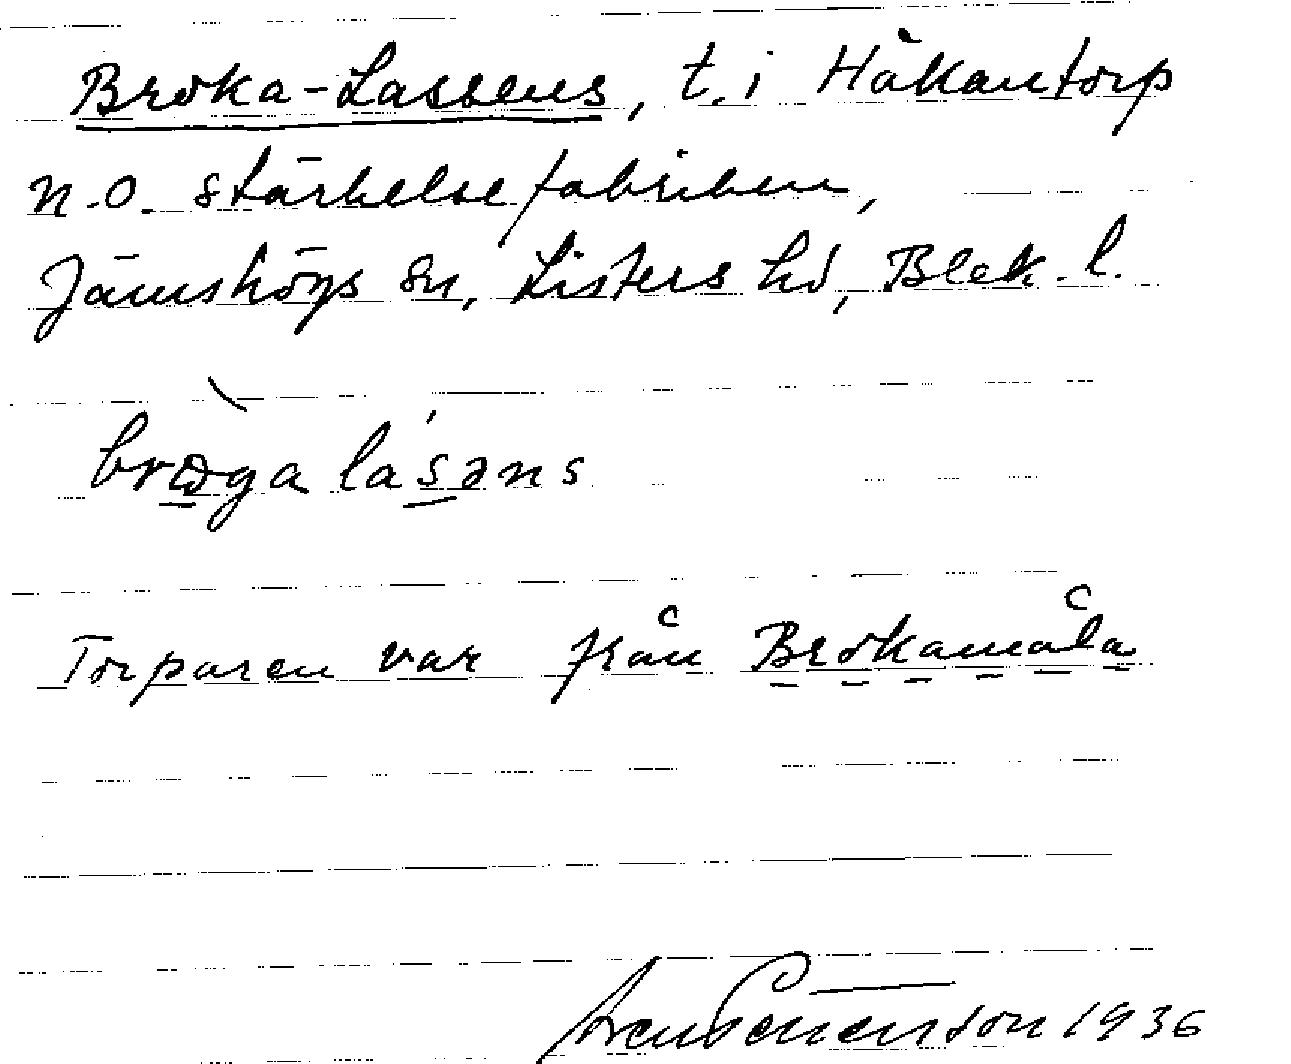 Broka-Lassens, t. i Håkantorp
n.o. stärkelsefabriken,
Jämshögs sn, Listers hd, Blek. l.
brøga lasəns
Torparen var från Brokamåla
1936